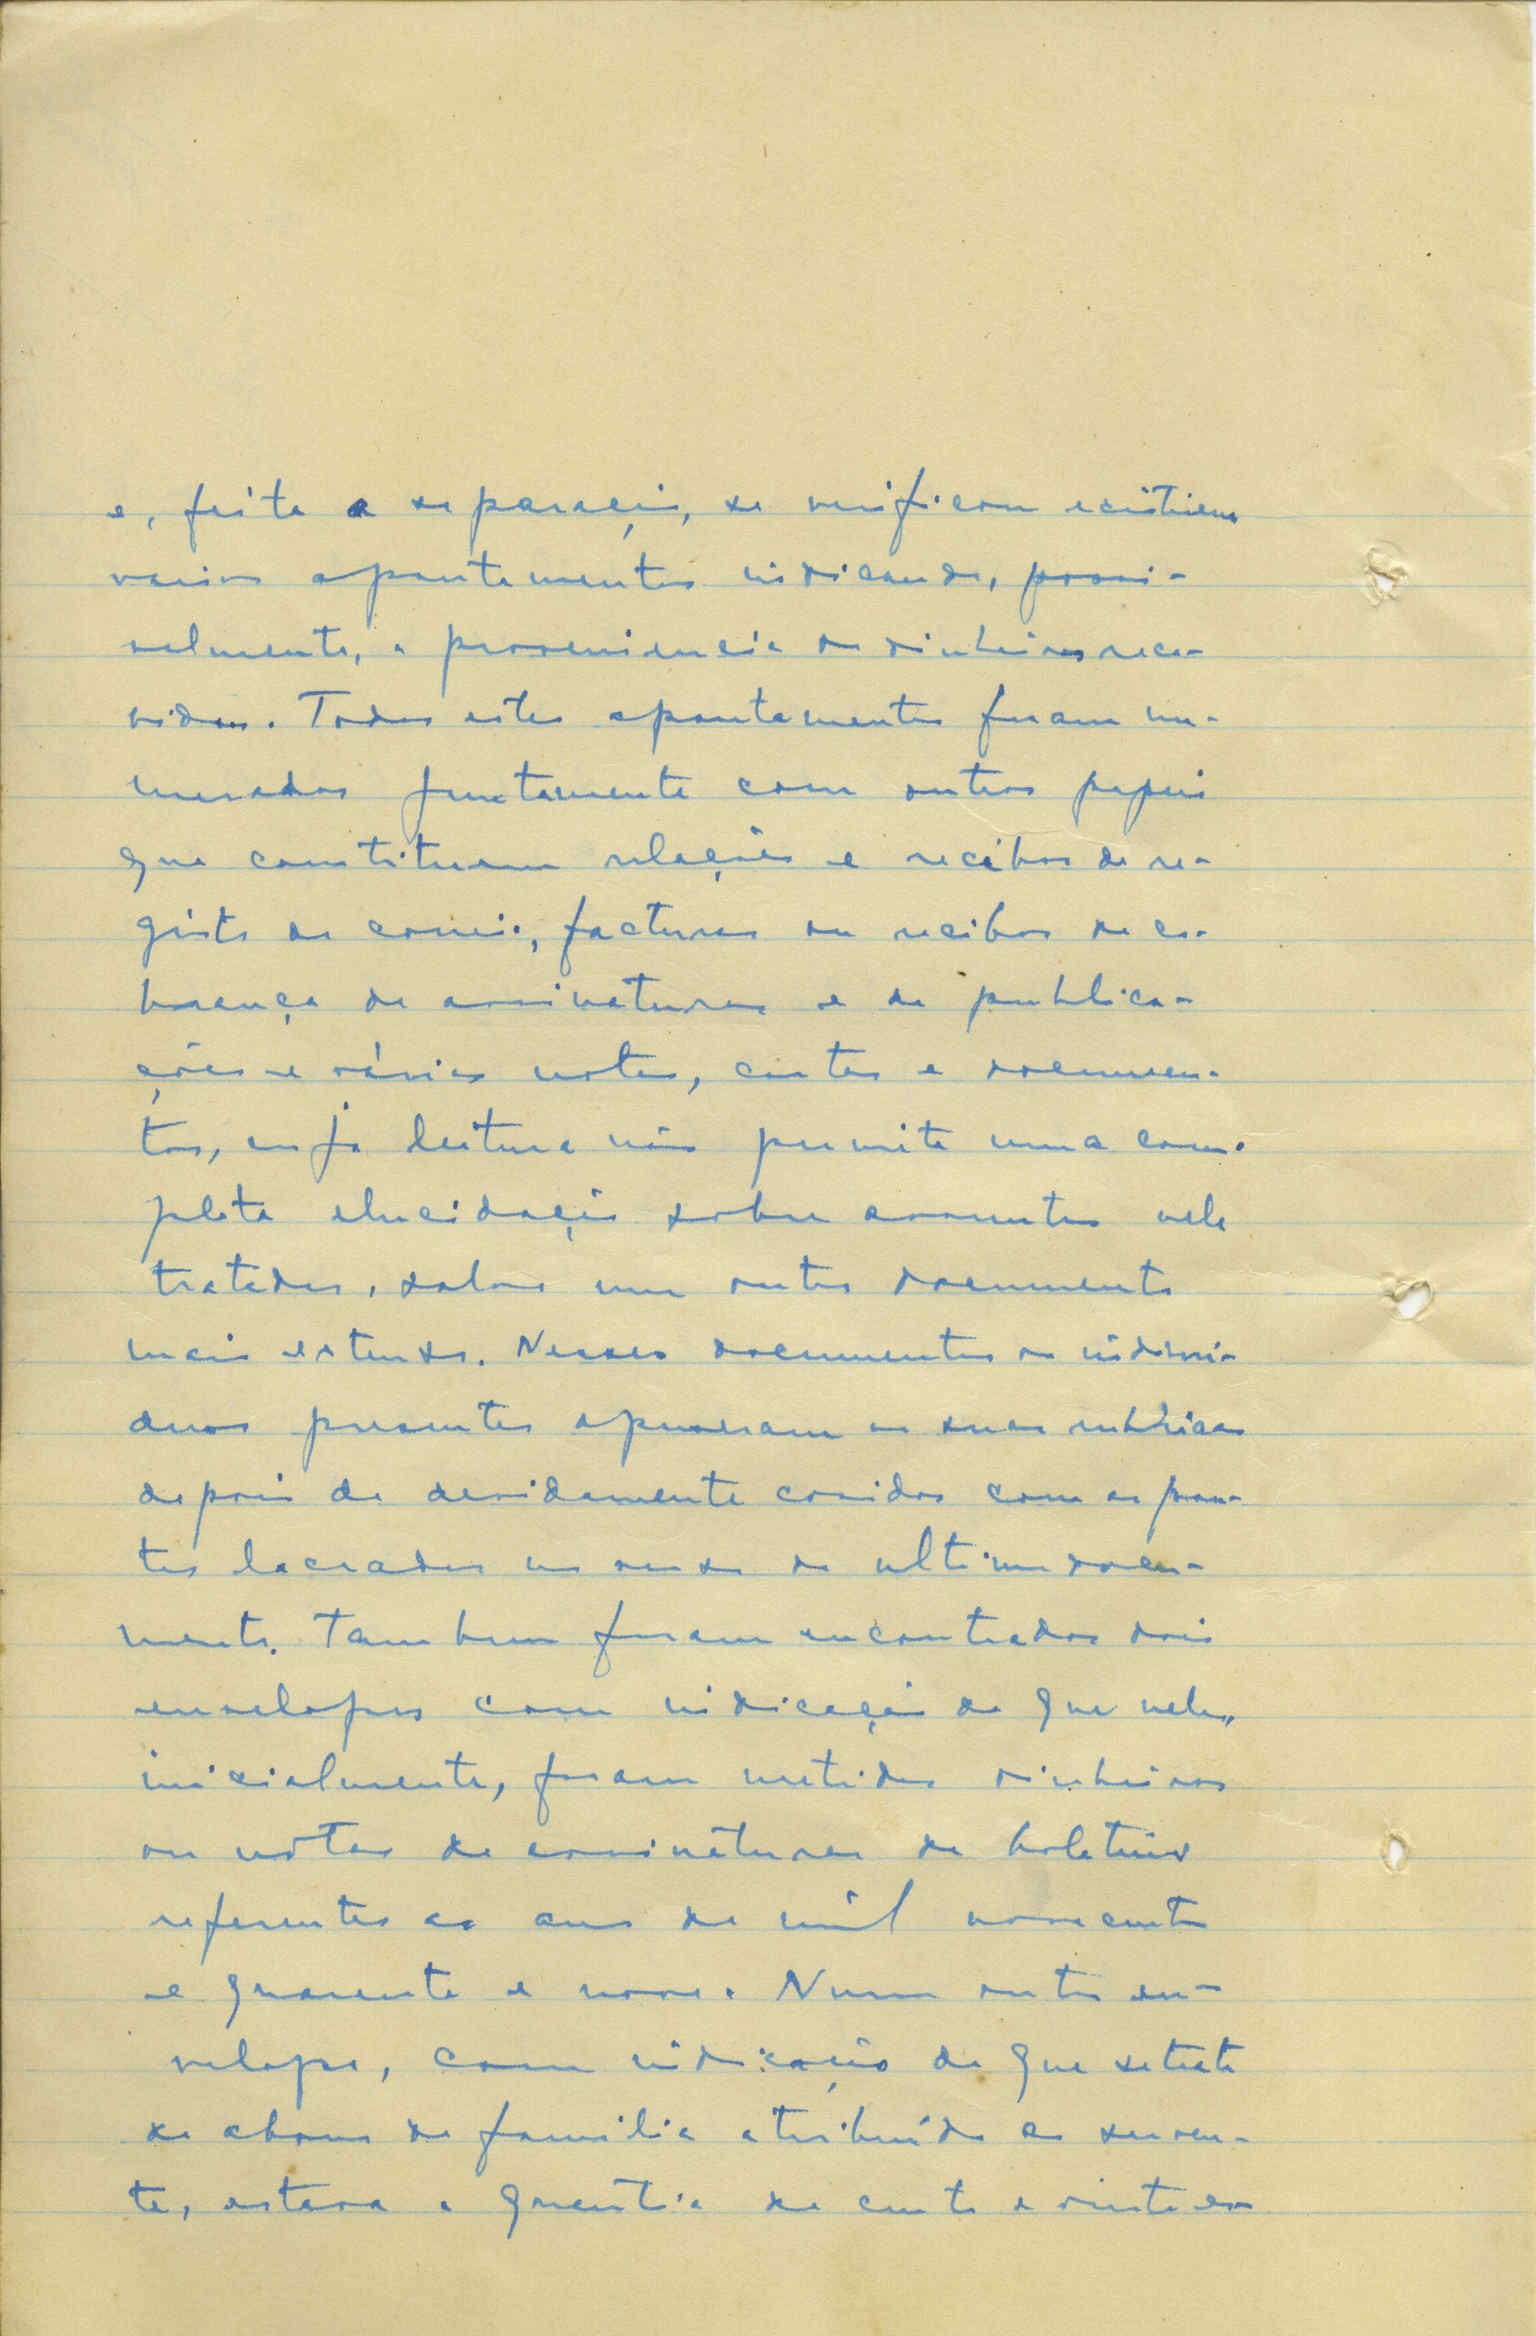 e, feita a separação, se verificou existirem
varios apontamentos indicando, possi-
velmente, a proveniencia de dinheiros rece-
bidos. Todos estes apontamentos foram nu-
merados juntamente com outros papeis
que constituem relações e recibos de re-
gisto do correio, facturas ou recibos de co-
brança de assinaturas e de publica-
ções e vários notas, cartas e documen-
tos, cuja leitura não permite uma com-
pleta elucidação sobre assuntos nele
tratados, salvo um outro documento
mais extenso. Nesses documentos os indivi-
duos presentes apuseram as suas rubricas
depois de devidamente cosidos com as pon-
tas lacradas no verso do ultimo docu-
mento. Tambem foram encontrados dois
envelopes com indicação de que neles,
inicialmente, foram metidos dinheiros
ou notas de assinaturas de boletins
referentes ao ano de mil novecentos
e quarenta e nove. Num outro en-
velope, com indicação de que se trata
de abono de familia atribuido ao serven-
te, estava a quantia de cento e vinte es-